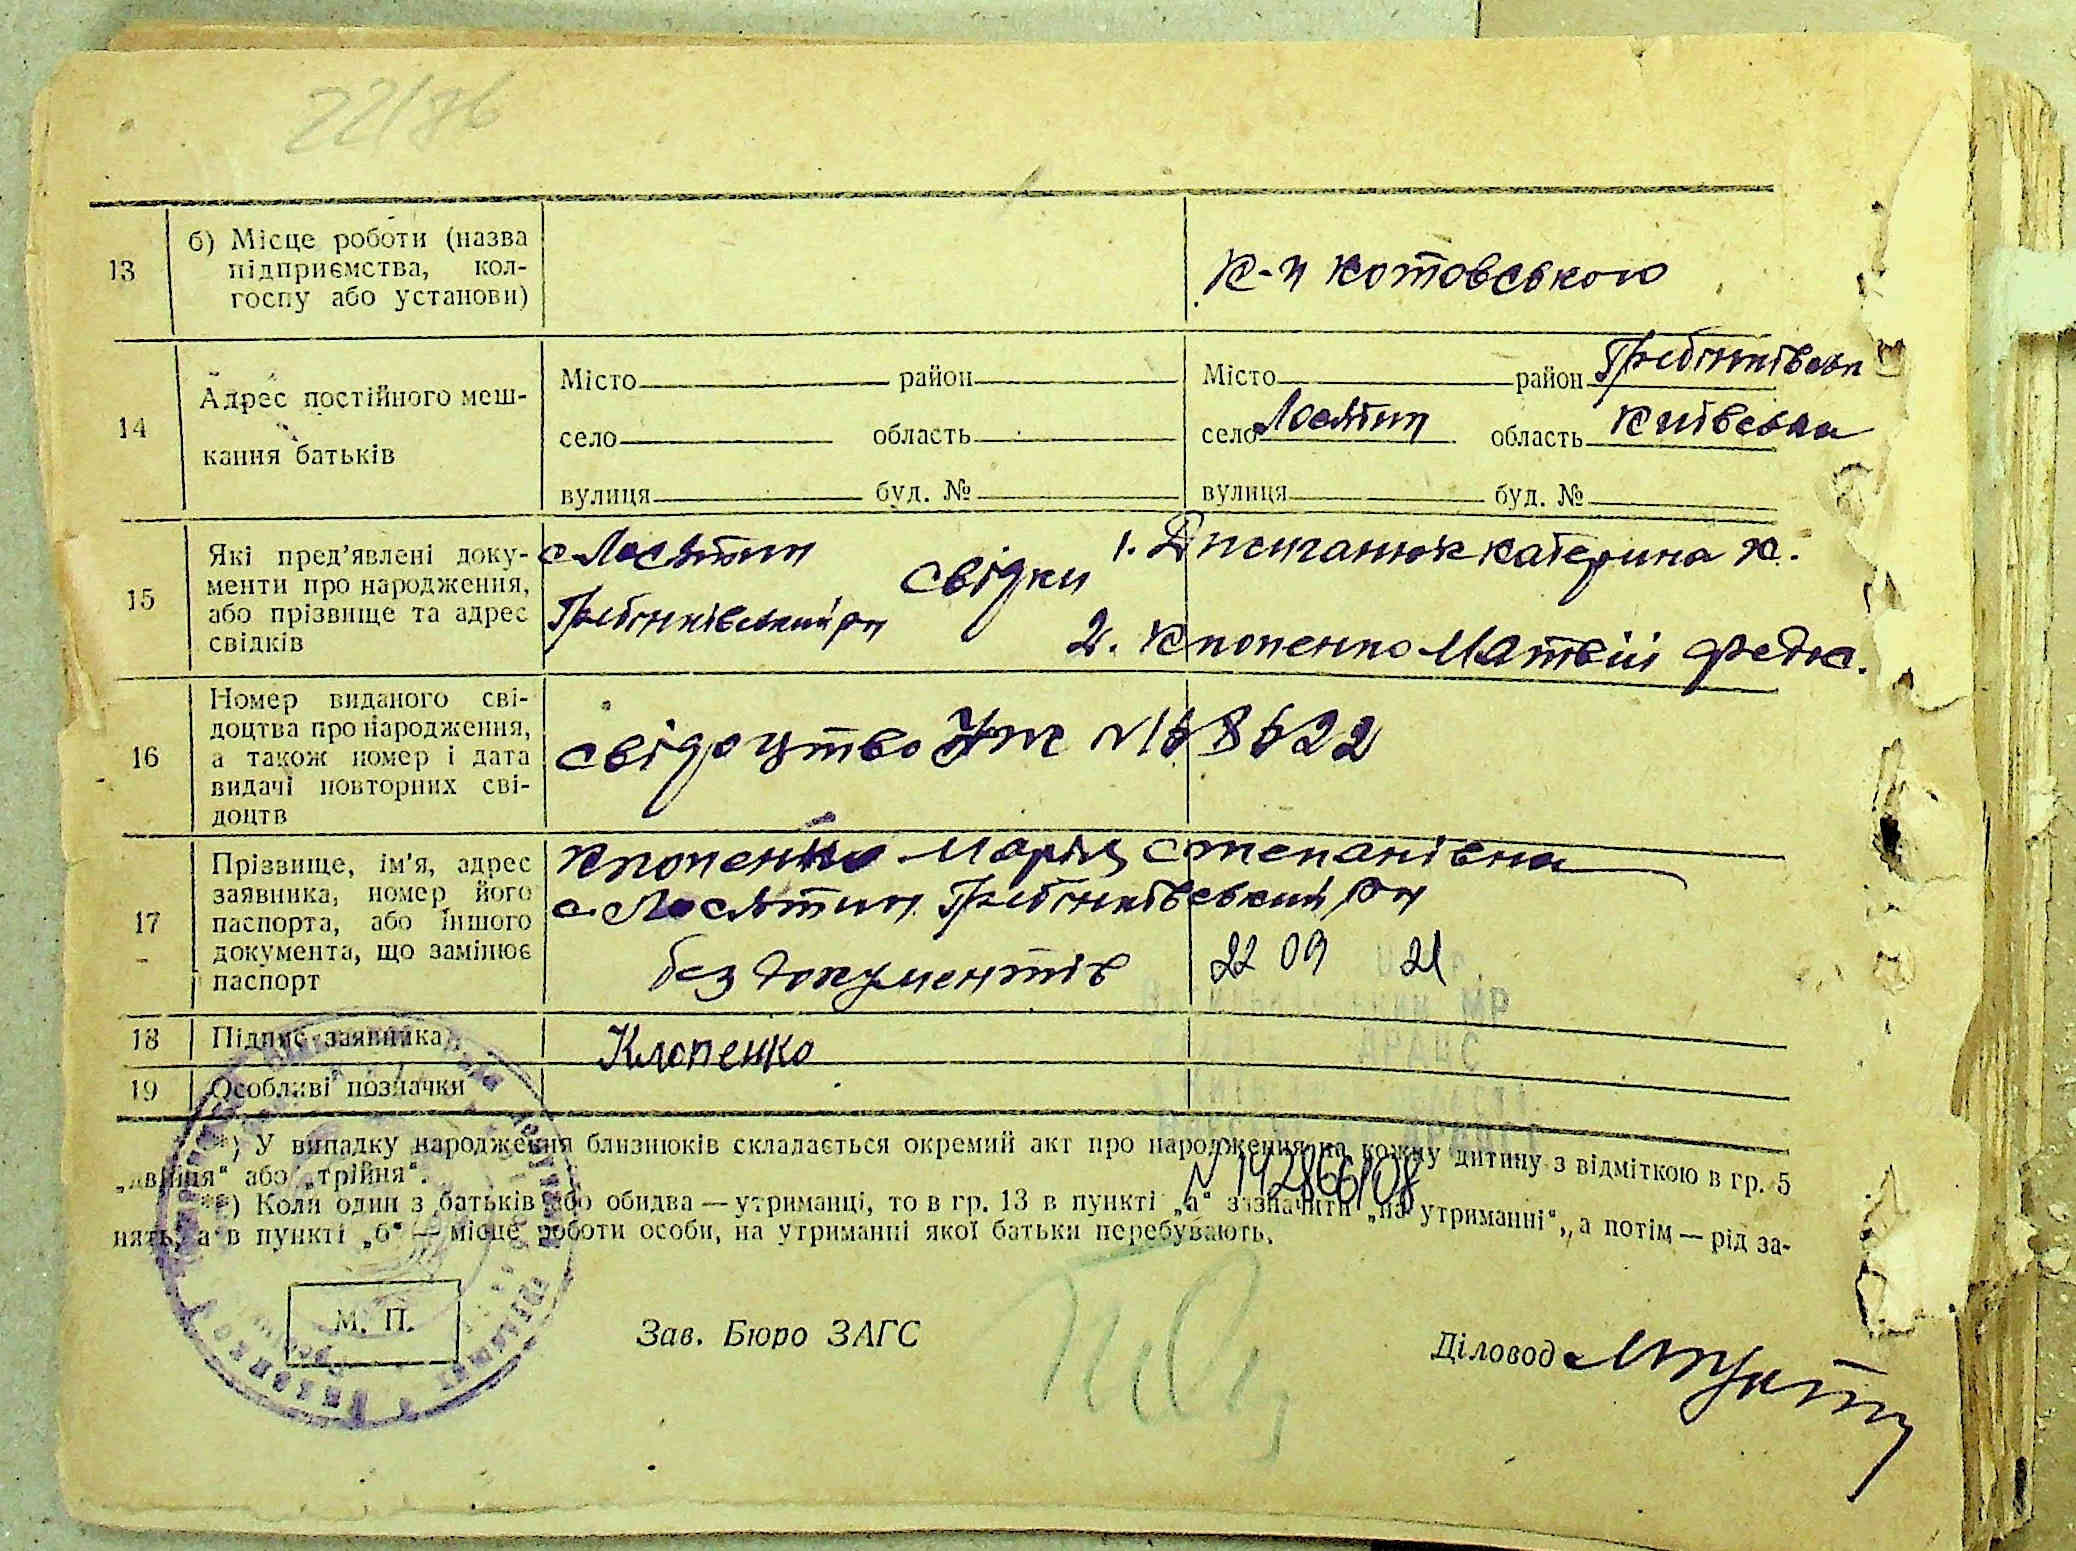 22/86
13
б) Місце роботи (назва
підприємства, кол-
госпу або установи)
к-п Котовського
14
Адрес постійного меш-
кання батьків
Місто район
село область
вулиця буд. №
Місто район Гребінківськ
село Лосятин область Київська
вулиця буд. №
15
Які пред’явлені доку-
менти про народження,
або прізвище та адрес
свідків
с Лосятин
Гребінківський рн
свідки
1. Катерина К.
2. Клопенко Матвій Федос.
16
Номер виданого сві-
доцтва про народження,
а також номер і дата
видачі повторних сві-
доцтв
свідоцтво №168622
17
Прізвище, ім’я, адрес
заявника, номер його
паспорта, або іншого
документа, що замінює
паспорт
Клопенко Марія Степанівна
с. Лосятин Гребінківський рн
без документів
22 09 21
18
Підпис заявника
Клопенко
19
Особливі позначки
*) У випадку народження близнюків складається окремий акт про народження на кожну дитину з відміткою в гр. 5
„двійня“ або „трійня“.
**) Коли один з батьків або обидва — утриманці, то в гр. 13 в пункті „а“ зазначити „на утриманні“, а потім — рід за-
нять, а в пункті „б“ — місце роботи особи, на утриманні якої батьки перебувають.
М. П.
Зав. Бюро ЗАГС
Діловод